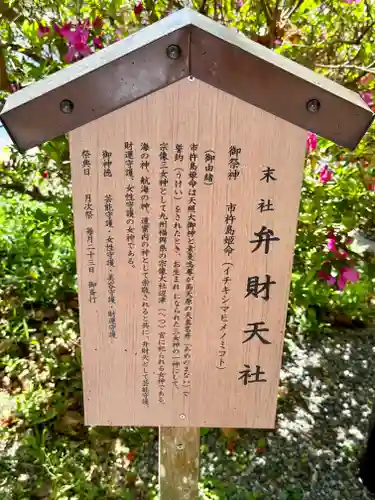 末社 弁財天社
御祭神 市杵島姫命(イチキシマヒメノミコト)
(御由緒)
市杵島姫命は天照大御神と素戔嗚尊が高天原の天真名井(あめのまない)で
誓約(うけい)をされたとき、お生まれになられた三女神の一神にして、
宗像三女神の一神として九州福岡県の宗像大社辺津(へつ)宮に祀られる女神である。
海の神、航海の神、運業の神として崇敬されると共に、弁財天として芸能守護、
財運守護、女性守護の女神である。
御神徳 芸能守護・女性守護・美容守護・財運守護
祭典日 月次祭 毎月二十三日 御斉行